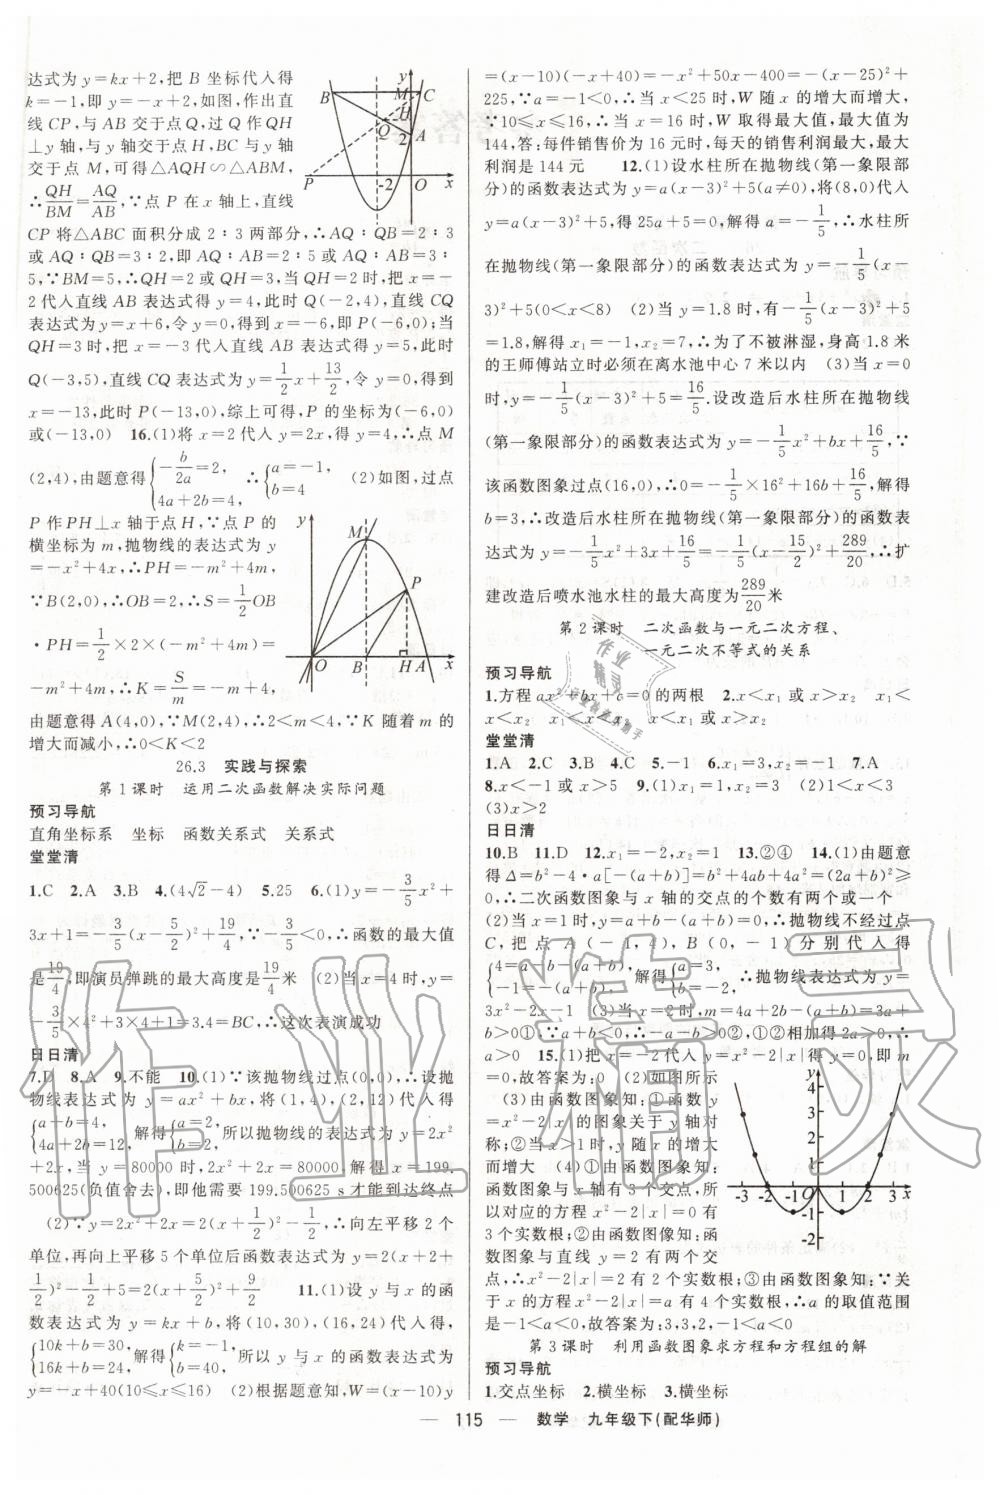 达式为 y=kx+2,把 B 坐标代入得
k=-1,即 y=-x+2,如图,作出直
线 CP,与 AB 交于点 Q,过 Q 作 QH
⊥y 轴,与 y 轴交于点 H,BC 与 y 轴
交于点 M,可得△AQH∽△ABM,
∴QH/BM=AQ/AB,∵点 P 在 x 轴上,直线
CP 将△ABC 面积分成 2∶3 两部分,∴AQ∶QB=2∶3
或 AQ∶QB=3∶2,即 AQ∶AB=2∶5 或 AQ∶AB=3∶
5,∵BM=5,∴QH=2 或 QH=3,当 QH=2 时,把 x=-
2 代入直线 AB 表达式得 y=4,此时 Q(-2,4),直线 CQ
表达式为 y=x+6,令 y=0,得到 x=-6,即 P(-6,0);当
QH=3 时,把 x=-3 代入直线 AB 表达式得 y=5,此时
Q(-3,5),直线 CQ 表达式为 y=1/2x+13/2,令 y=0,得到
x=-13,此时 P(-13,0),综上可得,P 的坐标为(-6,0)
或(-13,0) 16.(1)将 x=2 代入 y=2x,得 y=4,∴点 M
(2,4),由题意得{-b/2a=2, 4a+2b=4, ∴{a=-1, b=4 (2)如图,过点
P 作 PH⊥x 轴于点 H,∵点 P 的
横坐标为 m,抛物线的表达式为 y
=-x²+4x,∴PH=-m²+4m,
∵B(2,0),∴OB=2,∴S=1/2OB
·PH=1/2×2×(-m²+4m)=
-m²+4m,∴K=S/m=-m+4,
由题意得 A(4,0),∵M(2,4),∴2<m<4,∵K 随着 m 的
增大而减小,∴0<K<2
26.3 实践与探索
第 1 课时 运用二次函数解决实际问题
预习导航
直角坐标系 坐标 函数关系式 关系式
堂堂清
1.C 2.A 3.B 4.(4√2-4) 5.25 6.(1)y=-3/5x²+
3x+1=-3/5(x-5/2)²+19/4,∵-3/5<0,∴函数的最大值
是19/4,即演员弹跳的最大高度是19/4米 (2)当 x=4 时,y=
-3/5×4²+3×4+1=3.4=BC,∴这次表演成功
日日清
7.D 8.A 9.不能 10.(1)∵该抛物线过点(0,0),∴设抛
物线表达式为 y=ax²+bx,将(1,4),(2,12)代入得
{a+b=4, 4a+2b=12, 解得{a=2, b=2, 所以抛物线的表达式为 y=2x²
+2x,当 y=80000 时,2x²+2x=80000,解得 x=199.
500625(负值舍去),即他需要 199.500625 s 才能到达终点
(2)∵y=2x²+2x=2(x+1/2)²-1/2,∴向左平移 2 个
单位,再向上平移 5 个单位后函数表达式为 y=2(x+2+
1/2)²-1/2+5=2(x+5/2)²+9/2 11.(1)设 y 与 x 的函
数表达式为 y=kx+b,将(10,30),(16,24)代入得,
{10k+b=30, 16k+b=24, 解得{k=-1, b=40, 所以 y 与 x 的函数表达式为
y=-x+40(10≤x≤16) (2)根据题意知,W=(x-10)y
=(x-10)(-x+40)=-x²+50x-400=-(x-25)²+
225,∵a=-1<0,∴当 x<25 时,W 随 x 的增大而增大,
∵10≤x≤16,∴当 x=16 时,W 取得最大值,最大值为
144,答:每件销售价为 16 元时,每天的销售利润最大,最大
利润是 144 元 12.(1)设水柱所在抛物线(第一象限部
分)的函数表达式为 y=a(x-3)²+5(a≠0),将(8,0)代入
y=a(x-3)²+5,得 25a+5=0,解得 a=-1/5,∴水柱所
在抛物线(第一象限部分)的函数表达式为 y=-1/5(x-
3)²+5(0<x<8) (2)当 y=1.8 时,有-1/5(x-3)²+5
=1.8,解得 x₁=-1,x₂=7,∴为了不被淋湿,身高 1.8 米
的王师傅站立时必须在离水池中心 7 米以内 (3)当 x=0
时,y=-1/5(x-3)²+5=16/5.设改造后水柱所在抛物线
(第一象限部分)的函数表达式为 y=-1/5x²+bx+16/5,∵
该函数图象过点(16,0),∴0=-1/5×16²+16b+16/5,解得
b=3,∴改造后水柱所在抛物线(第一象限部分)的函数表
达式为 y=-1/5x²+3x+16/5=-1/5(x-15/2)²+289/20,∴扩
建改造后喷水池水柱的最大高度为289/20米
第 2 课时 二次函数与一元二次方程、
一元二次不等式的关系
预习导航
1.方程 ax²+bx+c=0 的两根 2.x<x₁ 或 x>x₂ x₁<
x<x₂ x₁<x<x₂ x<x₁ 或 x>x₂
堂堂清
1.A 2.C 3.C 4.C 5.-1 6.x₁=3,x₂=-1 7.A
8.x<-1 或 x>5 9.(1)x₁=1,x₂=3 (2)1<x<3
(3)x>2
日日清
10.B 11.D 12.x₁=-2,x₂=1 13.②④ 14.(1)由题意
得 Δ=b²-4·a[-(a+b)]=b²+4ab+4a²=(2a+b)²≥
0,∴二次函数图象与 x 轴的交点的个数有两个或一个
(2)当 x=1 时,y=a+b-(a+b)=0,∴抛物线不经过点
C,把点 A(-1,4),B(0,-1)分别代入得
{4=a-b-(a+b), -1=-(a+b), 解得{a=3, b=-2, ∴抛物线表达式为 y=
3x²-2x-1 (3)当 x=2 时,m=4a+2b-(a+b)=3a+
b>0①,∵a+b<0,∴-a-b>0②,①②相加得 2a>0,∴
a>0 15.(1)把 x=-2 代入 y=x²-2|x|得 y=0,即 m
=0,故答案为:0 (2)如图所示
(3)由函数图象知:①函数
y=x²-2|x|的图象关于 y 轴对
称;②当 x>1 时,y 随 x 的增大
而增大 (4)①由函数图象知:
函数图象与 x 轴有 3 个交点,所
以对应的方程 x²-2|x|=0 有
3 个实数根;②由函数图象知:函
数图象与直线 y=2 有两个交
点,∴x²-2|x|=2 有 2 个实数根;③由函数图象知:∵关
于 x 的方程 x²-2|x|=a 有 4 个实数根,∴a 的取值范围
是-1<a<0,故答案为:3,3,2,-1<a<0
第 3 课时 利用函数图象求方程和方程组的解
预习导航
1.交点坐标 2.横坐标 3.横坐标
— 115 — 数学 九年级下(配华师)
作业精灵